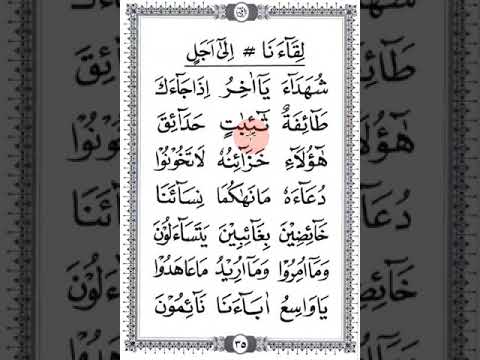 لِقَآءَنَا # اِلٰٓى اَجَلٍ
شُهَدَآءَ يَآاٰخِرُ اِذَاجَآءَكَ
طَآئِفَةٌ تٰٓئِبٰتٍ حَدَآئِقَ
هٰٓؤُلَآءِ خَزَآئِنُهٗ لَاتَخُوْنُوْا
دُعَآءَهٗ مَانَهٰكُمَا نِسَآئَنَا
خَآئِضِيْنَ بِغَآئِبِيْنَ يَتَسَآءَلُوْنَ
وَمَآاُمِرُوْا وَمَآاُرِيْدُ مَاعَاهَدُوْا
يَاوَاسِعُ اٰبَآءَنَا نَآئِمُوْنَ
٣٥